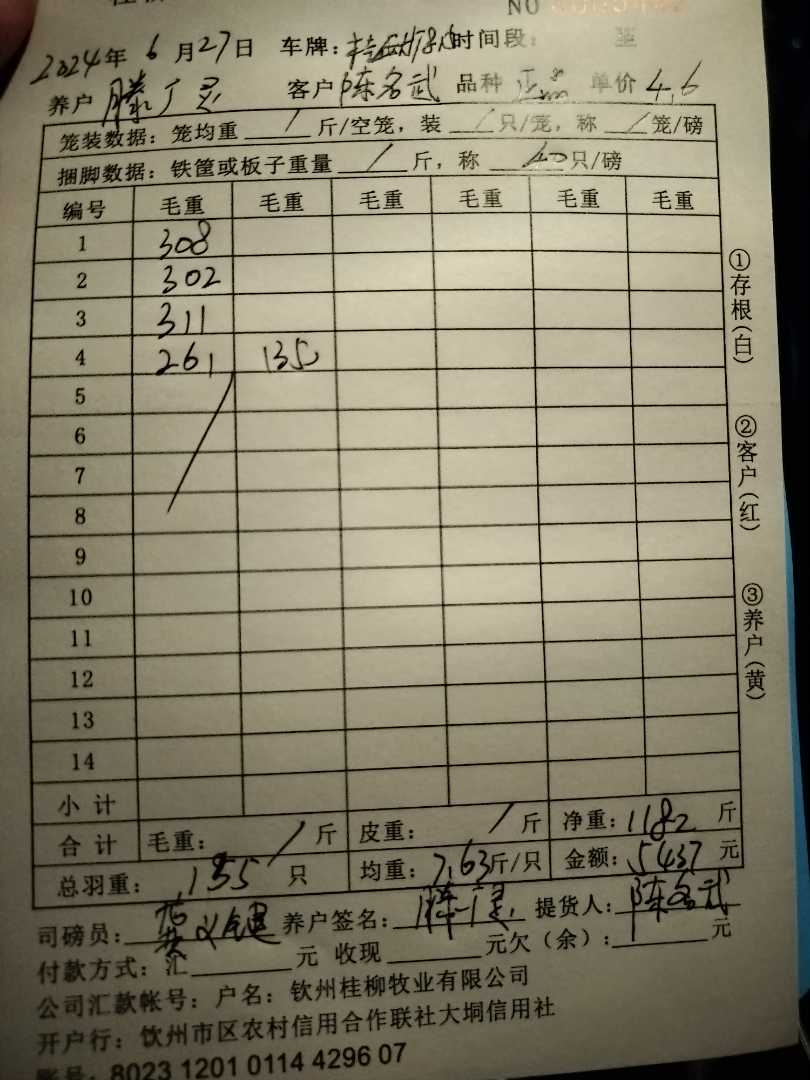 NO
2024年6月27日 车牌: 时间段: 至
养户 滕广灵 客户 陈名武 品种 正品 单价 4.6
笼装数据：笼均重 / 斤/空笼，装 / 只/笼，称 / 笼/磅
捆脚数据：铁筐或板子重量 / 斤，称 40 只/磅
编号 毛重 毛重 毛重 毛重 毛重 毛重
1 308
2 302
3 311
4 261 135
5
6
7
8
9
10
11
12
13
14
小计
合计 毛重： / 斤 皮重： / 斤 净重：1182 斤
总羽重： 155 只 均重：7.63斤/只 金额：5437 元
司磅员： 养户签名：滕广灵 提货人：陈名武
付款方式：汇 元 收现 元欠（余）： 元
公司汇款帐号：户名：钦州桂柳牧业有限公司
开户行：钦州市区农村信用合作联社大垌信用社
账号：8023 1201 0114 4296 07
①存根(白)
②客户(红)
③养户(黄)